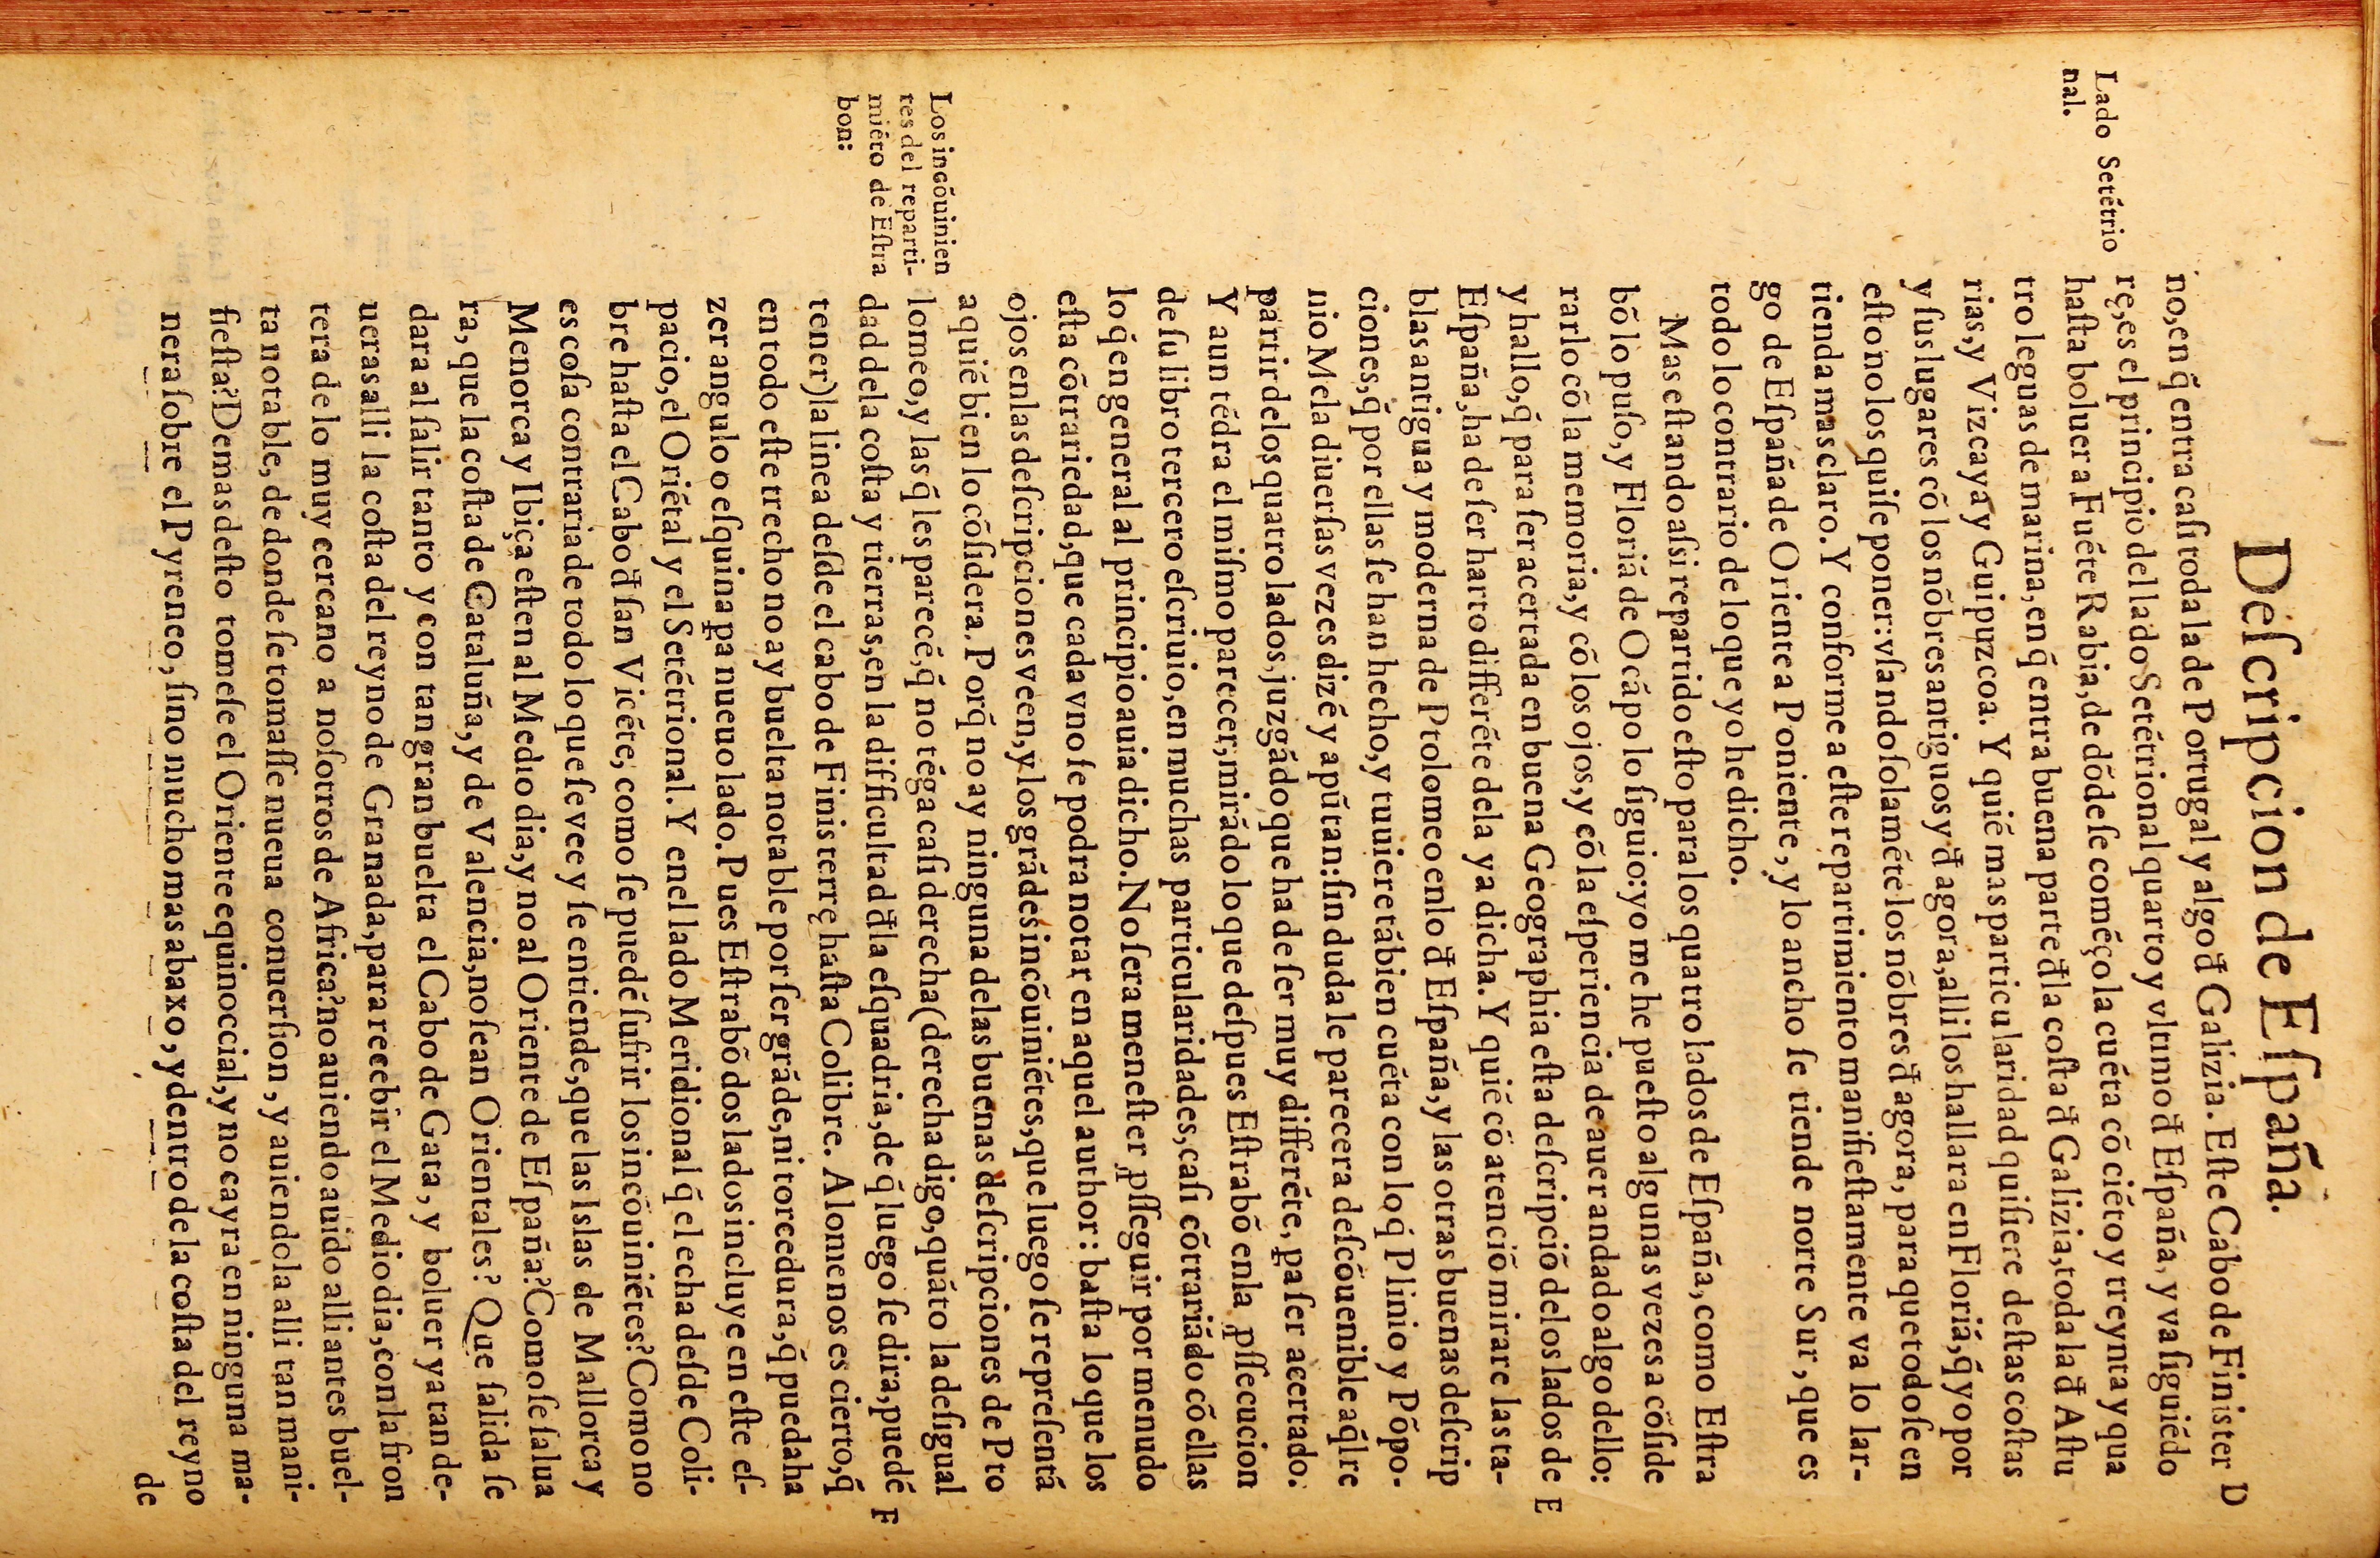 Deſcripcion de Eſpaña.
no, en q̃ entra caſi toda la de Portugal y algo đ Galizia. Eſte Cabo de Finister D
Lado Setẽtrio
nal.
rę, es el principio del lado Setẽtrional quarto y vltimo đ Eſpaña, y va ſiguiẽdo
haſta boluer a Fuẽte Rabia, de dõde ſe comẽço la cuẽta cõ ciẽto y treynta y qua
tro leguas de marina, en q̃ entra buena parte đla coſta đ Galizia, toda la đ Aſtu
rias, y Vizcaya y Guipuzcoa. Y quiẽ mas particularidad quiſiere deſtas coſtas
y ſus lugares cõ los nõbres antiguos y đ agora, alli los hallara en Floriã, q̃ yo por
eſto no los quiſe poner: vſando ſolamẽte los nõbres đ agora, para que todo ſe en
tienda mas claro. Y conforme a eſte repartimiento manifieſtamente va lo lar-
go de Eſpaña de Oriente a Poniente, y lo ancho ſe tiende norte Sur, que es
todo lo contrario de lo que yo he dicho.
Mas eſtando aſsi repartido eſto para los quatro lados de Eſpaña, como Eſtra
bõ lo puſo, y Floriã de Ocãpo lo ſiguio: yo me he pueſto algunas vezes a cõſide
rarlo cõ la memoria, y cõ los ojos, y cõ la eſperiencia de auer andado algo dello:
y hallo, q̃ para ſer acertada en buena Geographia eſta deſcripciõ de los lados de E
Eſpaña, ha de ſer harto differẽte dela ya dicha. Y quiẽ cõ atenciõ mirare las ta-
blas antigua y moderna de Ptolomeo enlo đ Eſpaña, y las otras buenas deſcrip
ciones, q̃ por ellas ſe han hecho, y tuuiere tãbien cuẽta con lo q̃ Plinio y Põpo-
nio Mela diuerſas vezes dizẽ y apũtan: ſin duda le parecera deſcõuenible aq̃l re
partir delos quatro lados, juzgãdo que ha de ſer muy differẽte, ꝑa ſer acertado.
Y aun tẽdra el miſmo parecer, mirãdo lo que deſpues Eſtrabõ enla ꝓſſecucion
de ſu libro tercero eſcriuio, en muchas particularidades, caſi cõtrariãdo cõ ellas
lo q̃ en general al principio auia dicho. No ſera meneſter ꝓſſeguir por menudo
eſta cõtrariedad, que cada vno ſe podra notar en aquel author: baſta lo que los
ojos enlas deſcripciones veen, y los grãdes incõuiniẽtes, que luego ſe repreſentã
a quiẽ bien lo cõſidera. Porq̃ no ay ninguna delas buenas deſcripciones de Pto
Los incõuinien
tes del reparti-
miẽto de Eſtra
bon:
lomeo, y las q̃ les parecẽ, q̃ no tẽga caſi derecha (derecha digo, quãto la deſigual
dad dela coſta y tierras, en la dificultad đla eſquadria, de q̃ luego ſe dira, puedẽ F
tener) la linea deſde el cabo de Finis terrę haſta Colibre. Alomenos es cierto, q̃
en todo eſte trecho no ay buelta notable por ſer grãde, ni torcedura, q̃ pueda ha
zer angulo o eſquina ꝑa nueuo lado. Pues Eſtrabõ dos lados incluye en eſte eſ-
pacio, el Oriẽtal y el Setẽtrional. Y en el lado Meridional q̃ el echa deſde Coli-
bre haſta el Cabo đ ſan Vicẽte, como ſe puedẽ ſufrir los incõuiniẽtes? Como no
es coſa contraria de todo lo que ſe vee y ſe entiende, que las Islas de Mallorca y
Menorca y Ibiça eſten al Medio dia, y no al Oriente de Eſpaña? Como ſe ſalua
ra, que la coſta de Cataluña, y de Valencia, no ſean Orientales? Que ſalida ſe
dara al ſalir tanto y con tan gran buelta el Cabo de Gata, y boluer ya tan de-
ueras alli la coſta del reyno de Granada, para recebir el Medio dia, con la fron
tera de lo muy cercano a noſotros de Africa? no auiendo auido alli antes buel-
ta notable, de donde ſe tomaſſe nueua conuerſion, y auiendo la alli tan mani-
fieſta? Demas deſto tomeſe el Oriente equinoccial, y no cayra en ninguna ma-
nera ſobre el Pyreneo, ſino mucho mas abaxo, y dentro de la coſta del reyno
de